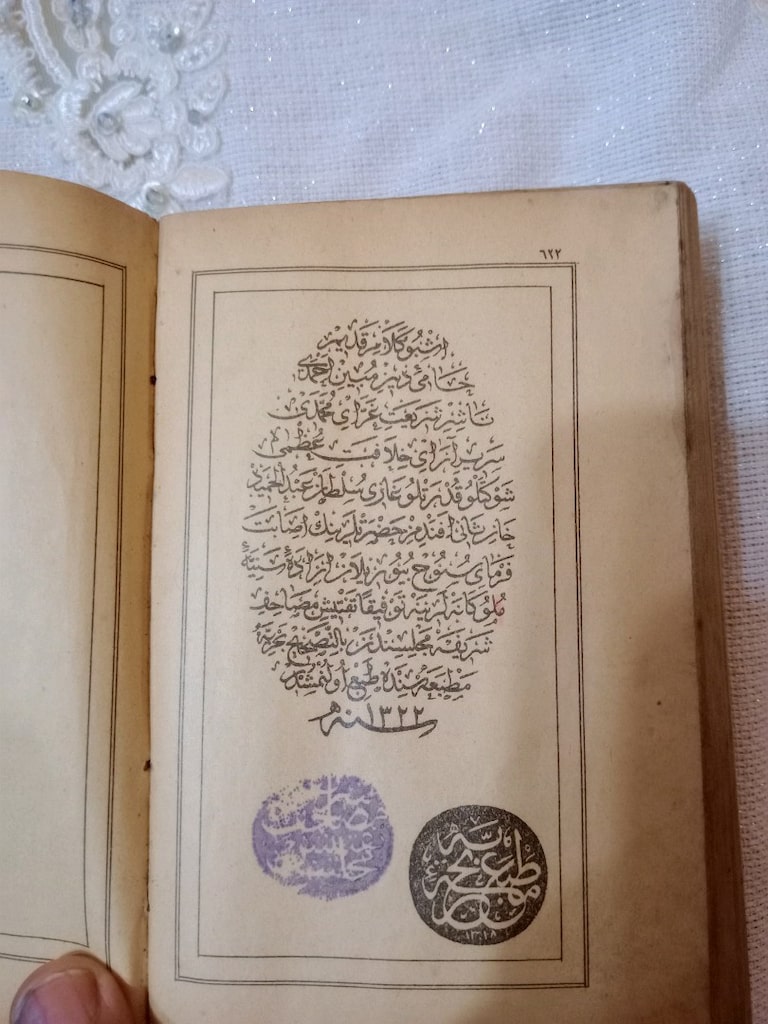 ٦٢٢
اشبو كلام قديم
حامئ دين مبين احمدى
ناشر شريعت غراى محمدى
سرير آراى خلافت عظمى
شوكتلو قدرتلو غازى سلطان عبد الحميد
خان ثانى افندمز حضرتلرينك اصابت
فرماى سنوح بيوريلان اراده سنيه
ملوكانه لرينه توفيقا تفتيش مصاحف
شريفه مجلسندن بالتصحيح بحريه
مطبعه سنده طبع اولنمشدر
سنه ١٣٢٢
مطبعه بحريه